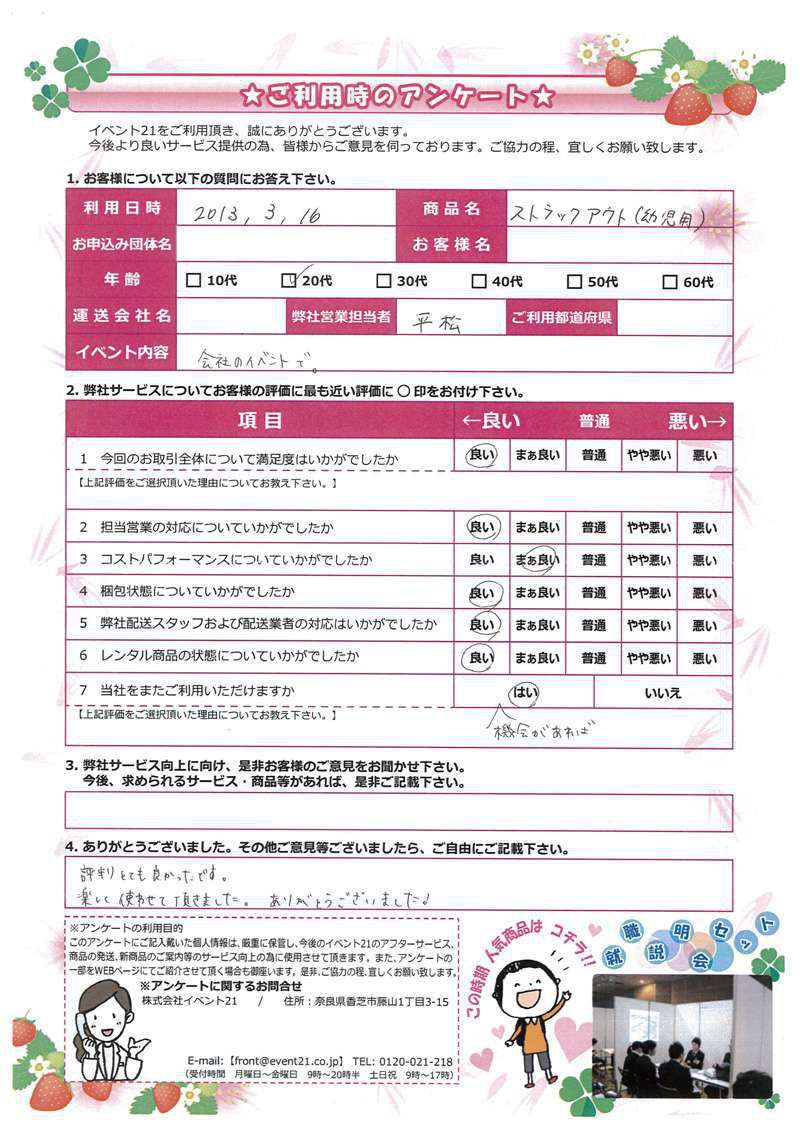 ★ご利用時のアンケート★
イベント21をご利用頂き、誠にありがとうございます。
今後より良いサービス提供の為、皆様からご意見を伺っております。ご協力の程、宜しくお願い致します。
1. お客様について以下の質問にお答え下さい。
利用日時 2013, 3, 16 商品名 ストラックアウト(幼児用)
お申込み団体名 お客様名
年齢 10代 20代 30代 40代 50代 60代
運送会社名 弊社営業担当者 平松 ご利用都道府県
イベント内容 会社のイベントで。
2. 弊社サービスについてお客様の評価に最も近い評価に 〇 印をお付け下さい。
項目 ←良い 普通 悪い→
1 今回のお取引全体について満足度はいかがでしたか 良い まぁ良い 普通 やや悪い 悪い
【上記評価をご選択頂いた理由についてお教え下さい。】
2 担当営業の対応についていかがでしたか 良い まぁ良い 普通 やや悪い 悪い
3 コストパフォーマンスについていかがでしたか 良い まぁ良い 普通 やや悪い 悪い
4 梱包状態についていかがでしたか 良い まぁ良い 普通 やや悪い 悪い
5 弊社配送スタッフおよび配送業者の対応はいかがでしたか 良い まぁ良い 普通 やや悪い 悪い
6 レンタル商品の状態についていかがでしたか 良い まぁ良い 普通 やや悪い 悪い
7 当社をまたご利用いただけますか はい いいえ
【上記評価をご選択頂いた理由についてお教え下さい。】 機会があれば
3. 弊社サービス向上に向け、是非お客様のご意見をお聞かせ下さい。
今後、求められるサービス・商品等があれば、是非ご記載下さい。
4. ありがとうございました。その他ご意見等ございましたら、ご自由にご記載下さい。
評判とても良かったです。
楽しく使わせて頂きました。 ありがとうございました!
※アンケートの利用目的
このアンケートにご記入戴いた個人情報は、厳重に保管し、今後のイベント21のアフターサービス、
商品の発送、新商品のご案内等のサービス向上の為に使用させて頂きます。また、アンケートの
一部をWEBページにてご紹介させて頂く場合も御座います。是非、ご協力の程、宜しくお願い致します。
※アンケートに関するお問合せ
株式会社イベント21 / 住所：奈良県香芝市藤山1丁目3-15
E-mail:【front@event21.co.jp】 TEL: 0120-021-218
（受付時間 月曜日～金曜日 9時～20時半 土日祝 9時～17時）
この時期 人気商品は コチラ!!
就職説明会セット